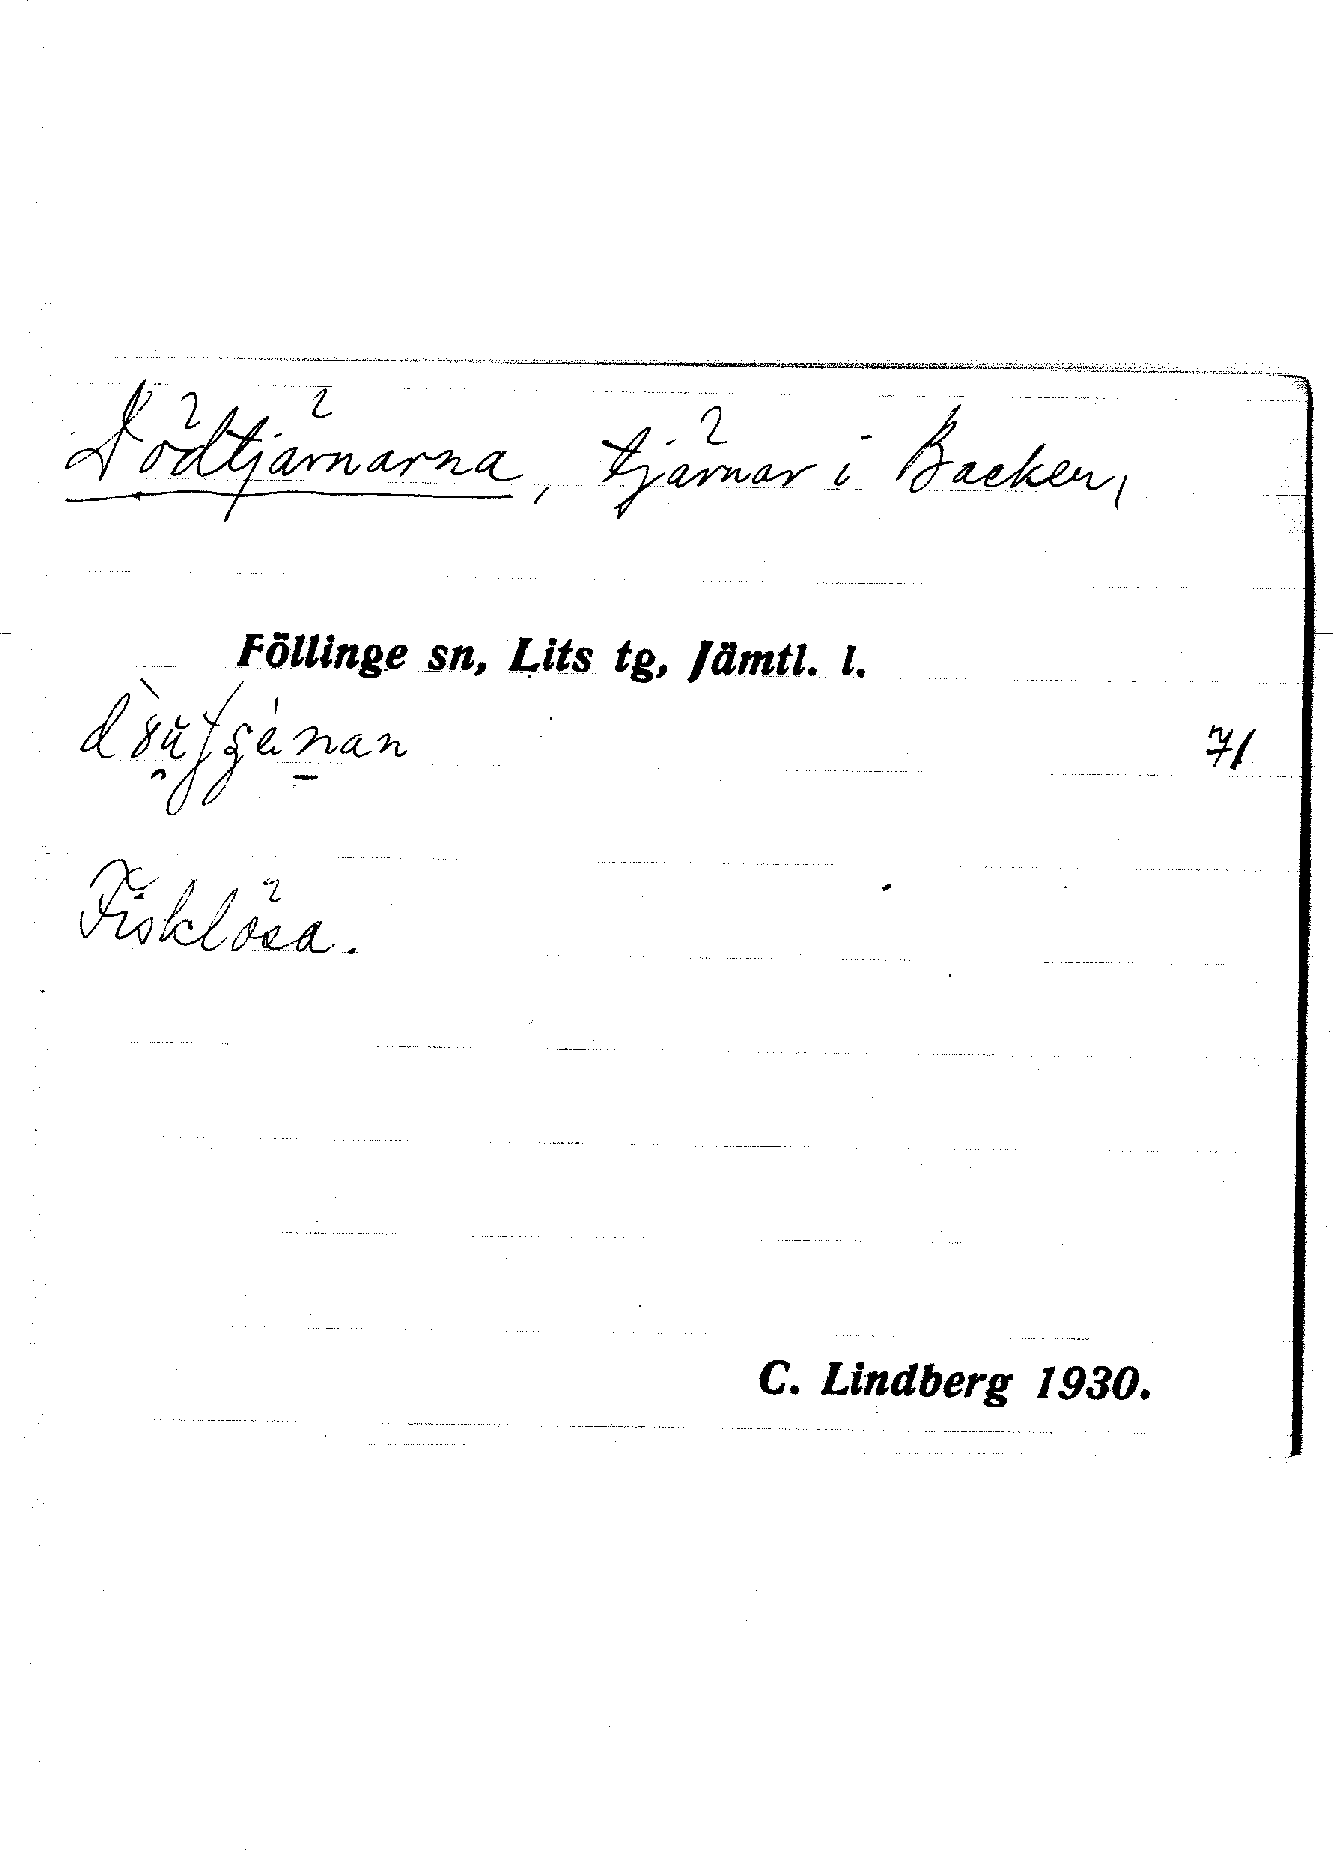 Dödtjärnarna, tjärnar i Backen,
Föllinge sn, Lits tg, Jämtl. l.
71
Fisklösa.
C. Lindberg 1930.